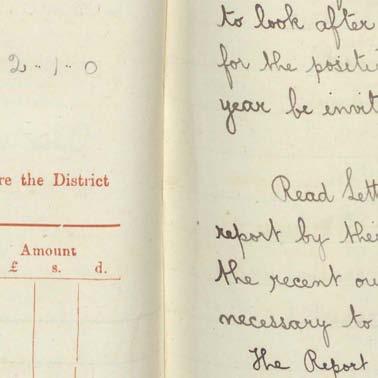 2 .. 1 .. 0
re the District
Amount
£ s. d.
to look after
for the positi
year be invit
Read Lett
report by thei
the recent ou
necessary to
The Report